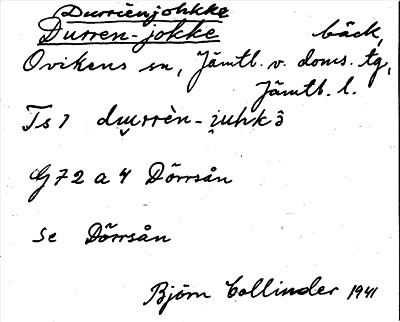 Durrienjohkke
Durren-jokke bäck,
Ovikens sn, Jämtl. v. doms. tg,
Jämtl. l.
Ts 1 duurrèn-i̯uhkɜ̂
G 72 a 4 Dörrsån
se Dörrsån
Björn Collinder 1941